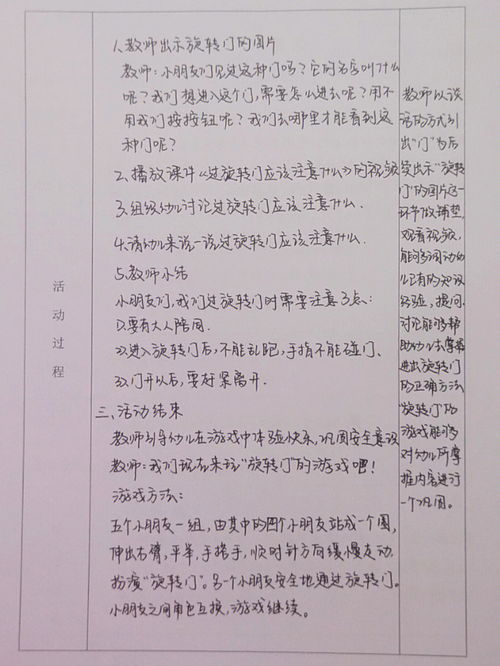 活
动
过
程
1.教师出示旋转门的图片
教师:小朋友们见过这种门吗?它的名字叫什么
呢?我们想进入这个门,需要怎么进去呢?用不
用我们按按钮呢?我们去哪里才能看到这
种门呢?
2.播放课件《过旋转门应该注意什么》的视频
3.组织幼儿讨论过旋转门应该注意什么.
4.请幼儿来说一说过旋转门应该注意什么.
5.教师小结
小朋友们,我们过旋转门时需要注意3点:
(1).要有大人陪同.
(2).进入旋转门后,不能乱跑,手指不能碰门、
(3).门开以后,要赶紧离开.
三、活动结束
教师引导幼儿在游戏中体验快乐,巩固安全意识
教师:我们现在来玩“旋转门”的游戏吧!
游戏方法:
五个小朋友一组,由其中的四个小朋友站成一个圈,
伸出右臂,平举,手搭手,顺时针方向缓慢走动.
扮演“旋转门”。另一个小朋友安全地通过旋转门。
小朋友之间角色互换,游戏继续。
教师以谈
话的方式引
出“门”为后
续出示“旋转
门”的图片这一
环节做铺垫,
观看视频,
能够调动幼
儿已有的知识
经验,提问.
讨论能够帮
助幼儿去掌握
进出旋转门
的正确方法
“旋转门”的
游戏能够
对幼儿所掌
握内容进行
一个巩固。